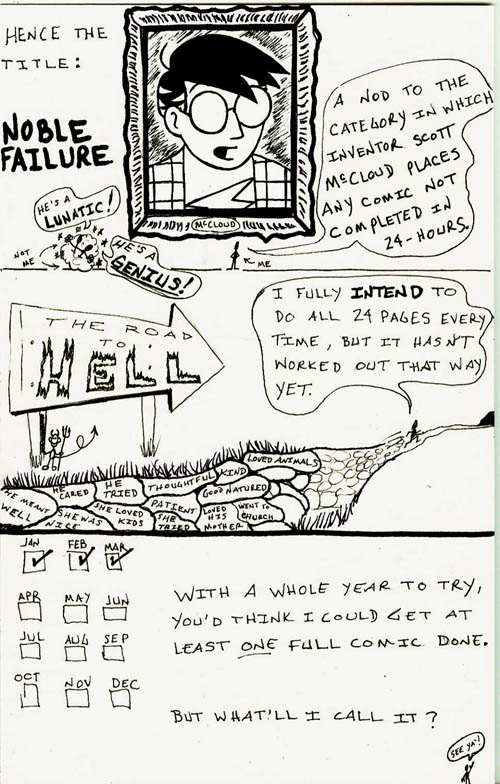 HENCE THE
TITLE:
NOBLE
FAILURE
McCLOUD
A NOD TO THE
CATEGORY IN WHICH
INVENTOR SCOTT
McCLOUD PLACES
ANY COMIC NOT
COMPLETED IN
24-HOURS.
HE'S A
LUNATIC!
HE'S A
GENIUS!
NOT
ME
ME
I FULLY INTEND TO
DO ALL 24 PAGES EVERY
TIME, BUT IT HASN'T
WORKED OUT THAT WAY
YET.
THE ROAD
TO
HELL
HE MEANT
WELL
HE
CARED
SHE WAS
NICE
HE
TRIED
SHE LOVED
KIDS
THOUGHTFUL
PATIENT
SHE
TRIED
KIND
GOOD NATURED
LOVED
HIS
MOTHER
LOVED ANIMALS
WENT TO
CHURCH
JAN FEB MAR
APR MAY JUN
JUL AUG SEP
OCT NOV DEC
WITH A WHOLE YEAR TO TRY,
YOU'D THINK I COULD GET AT
LEAST ONE FULL COMIC DONE.
BUT WHAT'LL I CALL IT?
SEE YA'!